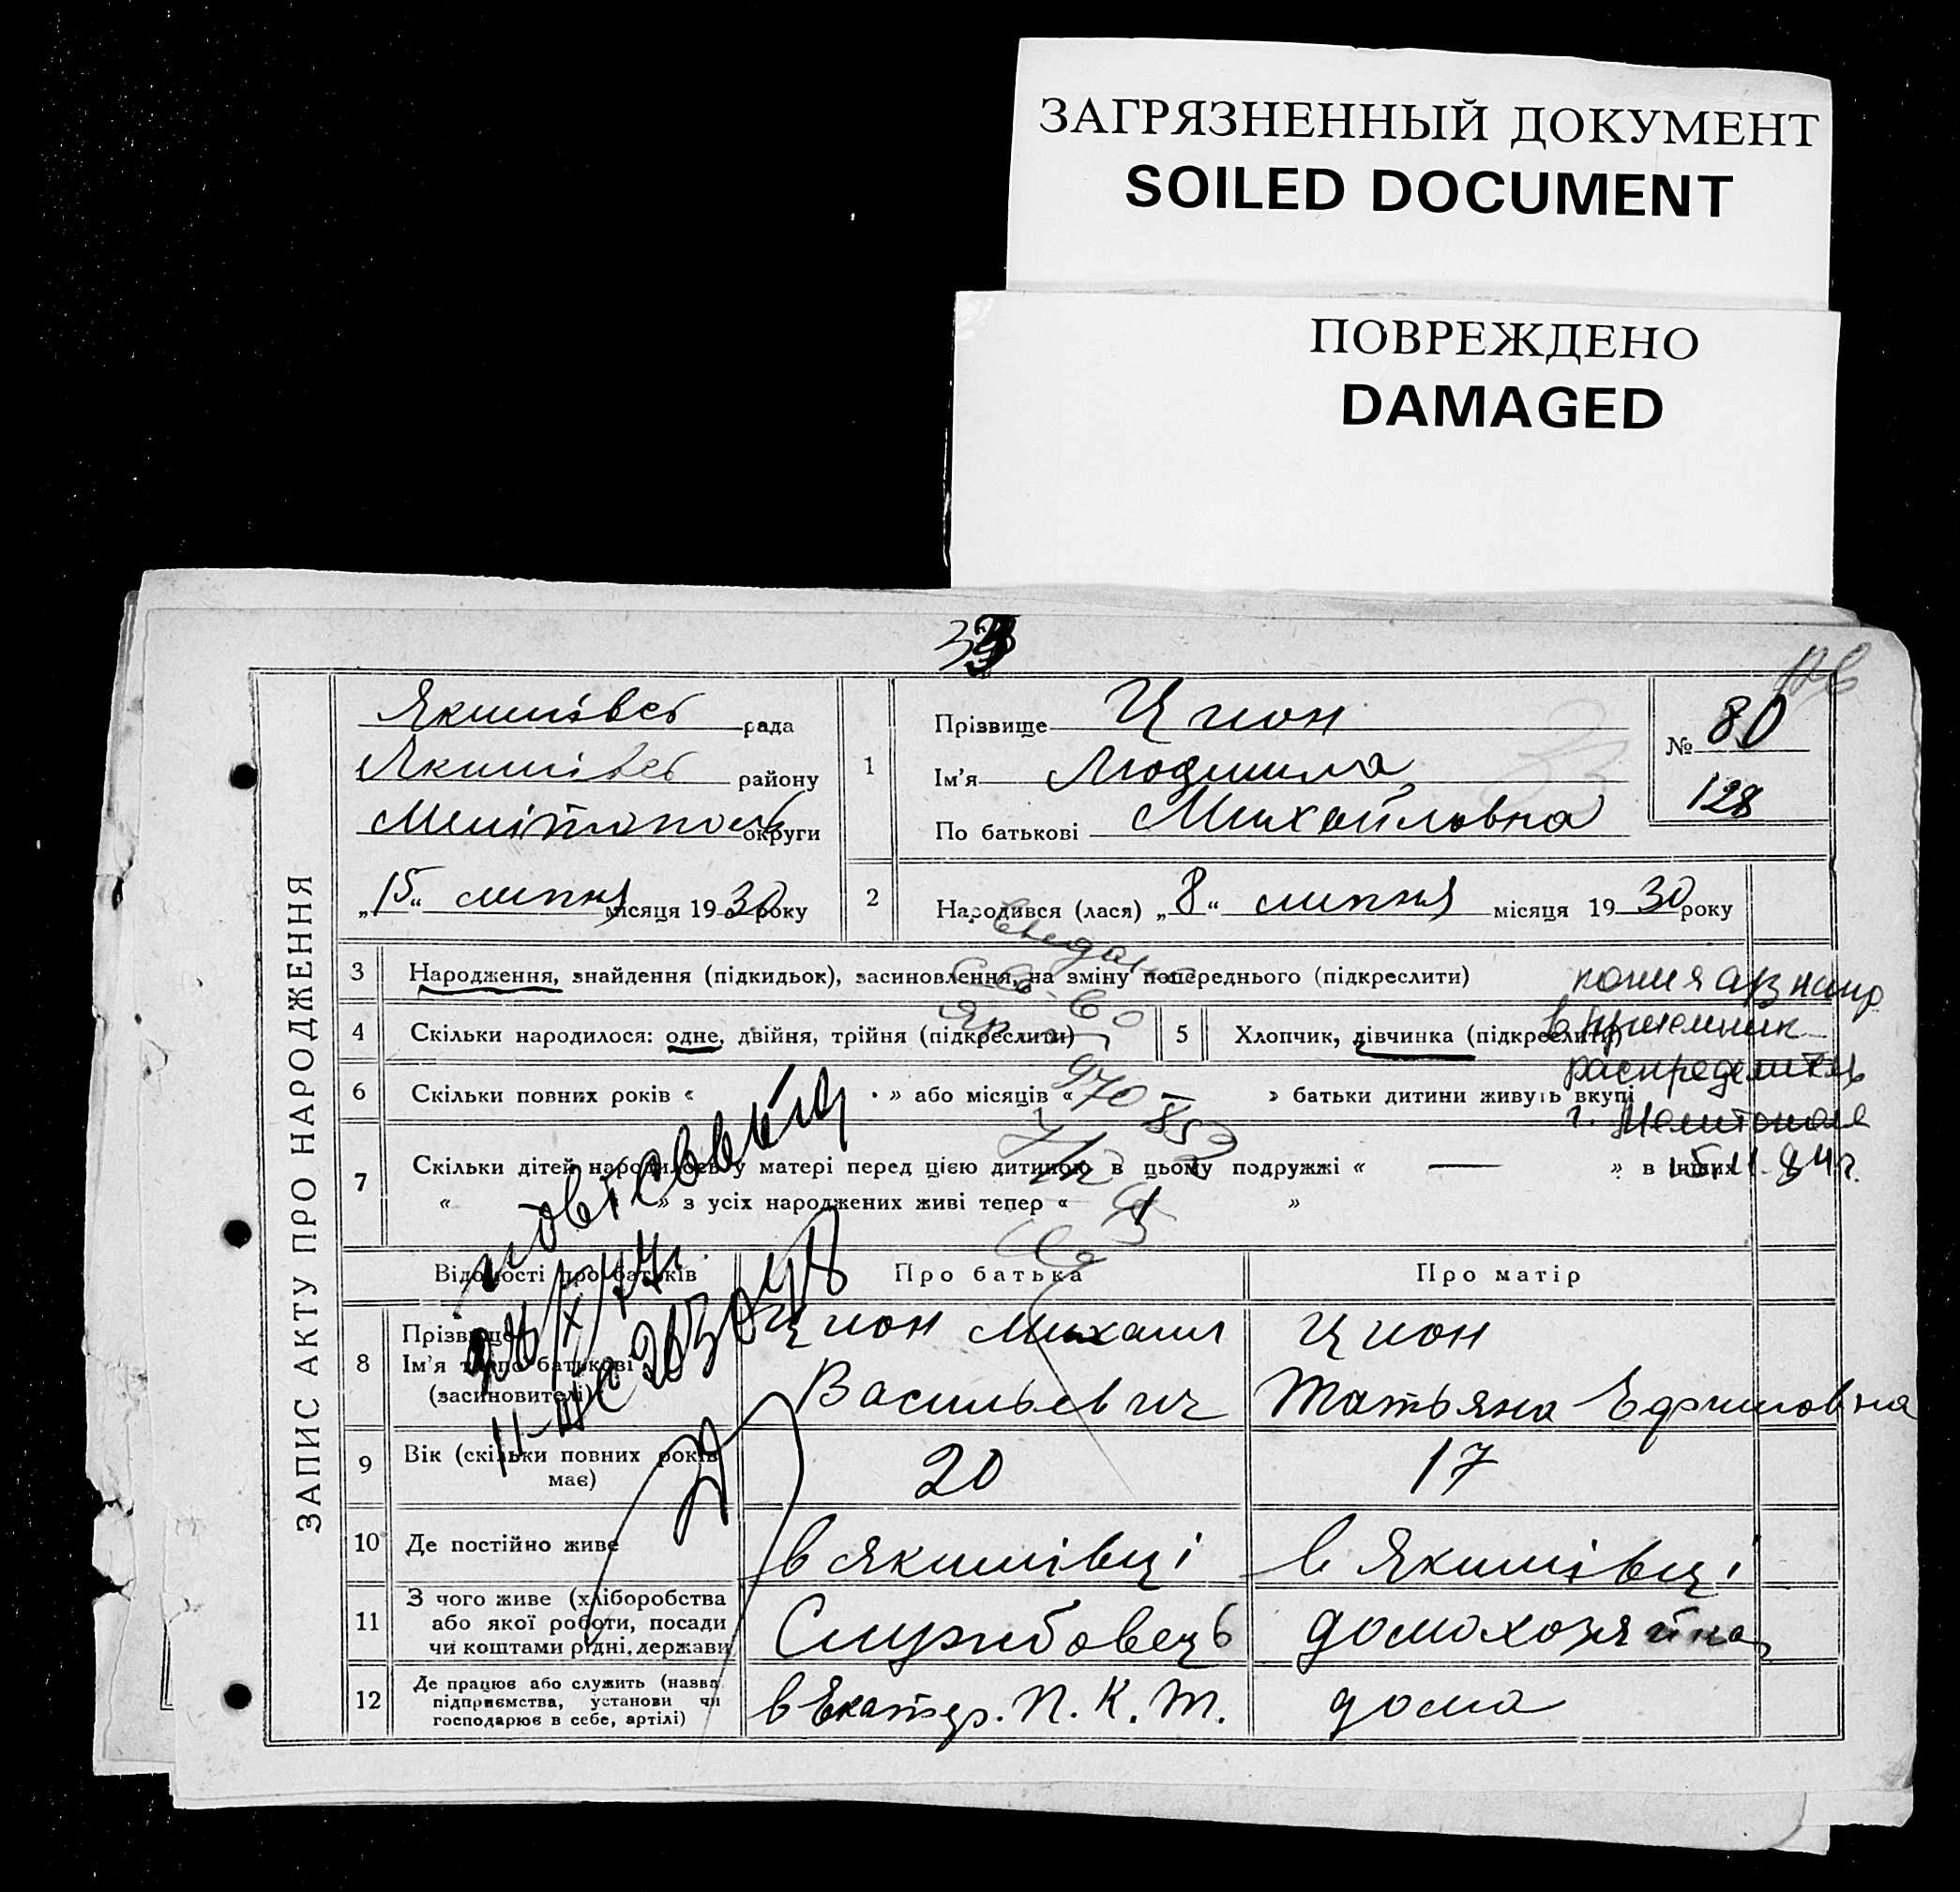 ЗАГРЯЗНЕННЫЙ ДОКУМЕНТ
SOILED DOCUMENT
ПОВРЕЖДЕНО
DAMAGED
ЗАПИС АКТУ ПРО НАРОДЖЕННЯ
Якимівсь рада
Якимівсь району
Мелітопольськ округи
„15“ липня місяця 1930 року
1
Прізвище Цион
Ім'я Людмила
По батькові Михайловна
№ 80
128
2
Народився (лася) „8“ липня місяця 1930 року
3 Народження, знайдення (підкидьок), засиновлення, на зміну попереднього (підкреслити)
4 Скільки народилося: одне, двійня, трійня (підкреслити) 5 Хлопчик, дівчинка (підкреслити)
6 Скільки повних років « » або місяців « » батьки дитини живуть вкупі
7 Скільки дітей народилось у матері перед цією дитиною в цьому подружжі « — » в інших
« » з усіх народжених живі тепер « 1 »
копия а/з напр
в приемник
распределитель
г. Мелитополя
Відомості про батьків Про батька Про матір
8 Прізвище Ім'я та по батькові (засновителі)
Цион Михаил
Васильевич
Цион
Татьяна Ефимовна
9 Вік (скільки повних років має) 20 17
10 Де постійно живе в Якимівці в Якимівці
11 З чого живе (хліборобства
або якої роботи, посади
чи коштами рідні, держави
Службовець домохозяйка
12 Де працює або служить (назва
підприємства, установи чи
господарює в себе, артілі)
П. К. Т. дома